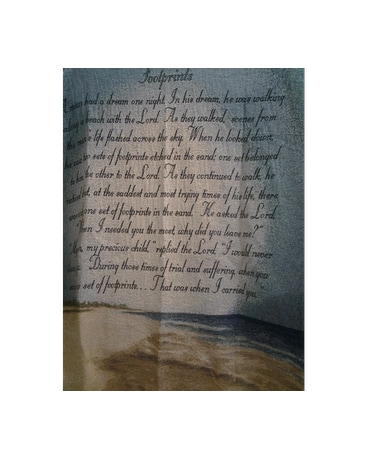 Footprints
had a dream one night. In his dream, he was walking
beach with the Lord. As they walked, scenes from
life flashed across the sky. When he looked down,
two sets of footprints etched in the sand; one set belonged
the other to the Lord. As they continued to walk, he
that, at the saddest and most trying times of his life, there
one set of footprints in the sand. He asked the Lord
I needed you the most, why did you leave me?"
my precious child," replied the Lord "I would never
During those times of trial and suffering, when you
set of footprints... That was when I carried you."